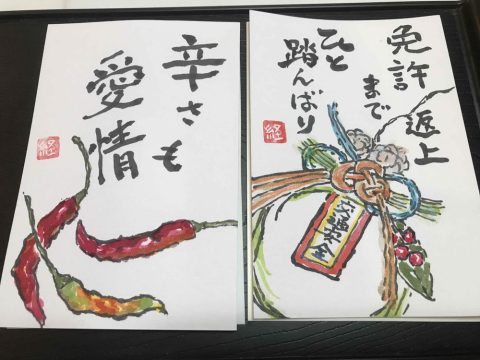 辛さも
愛情
経
免許
返上
まで
ひと
踏んばり
経
交通安全